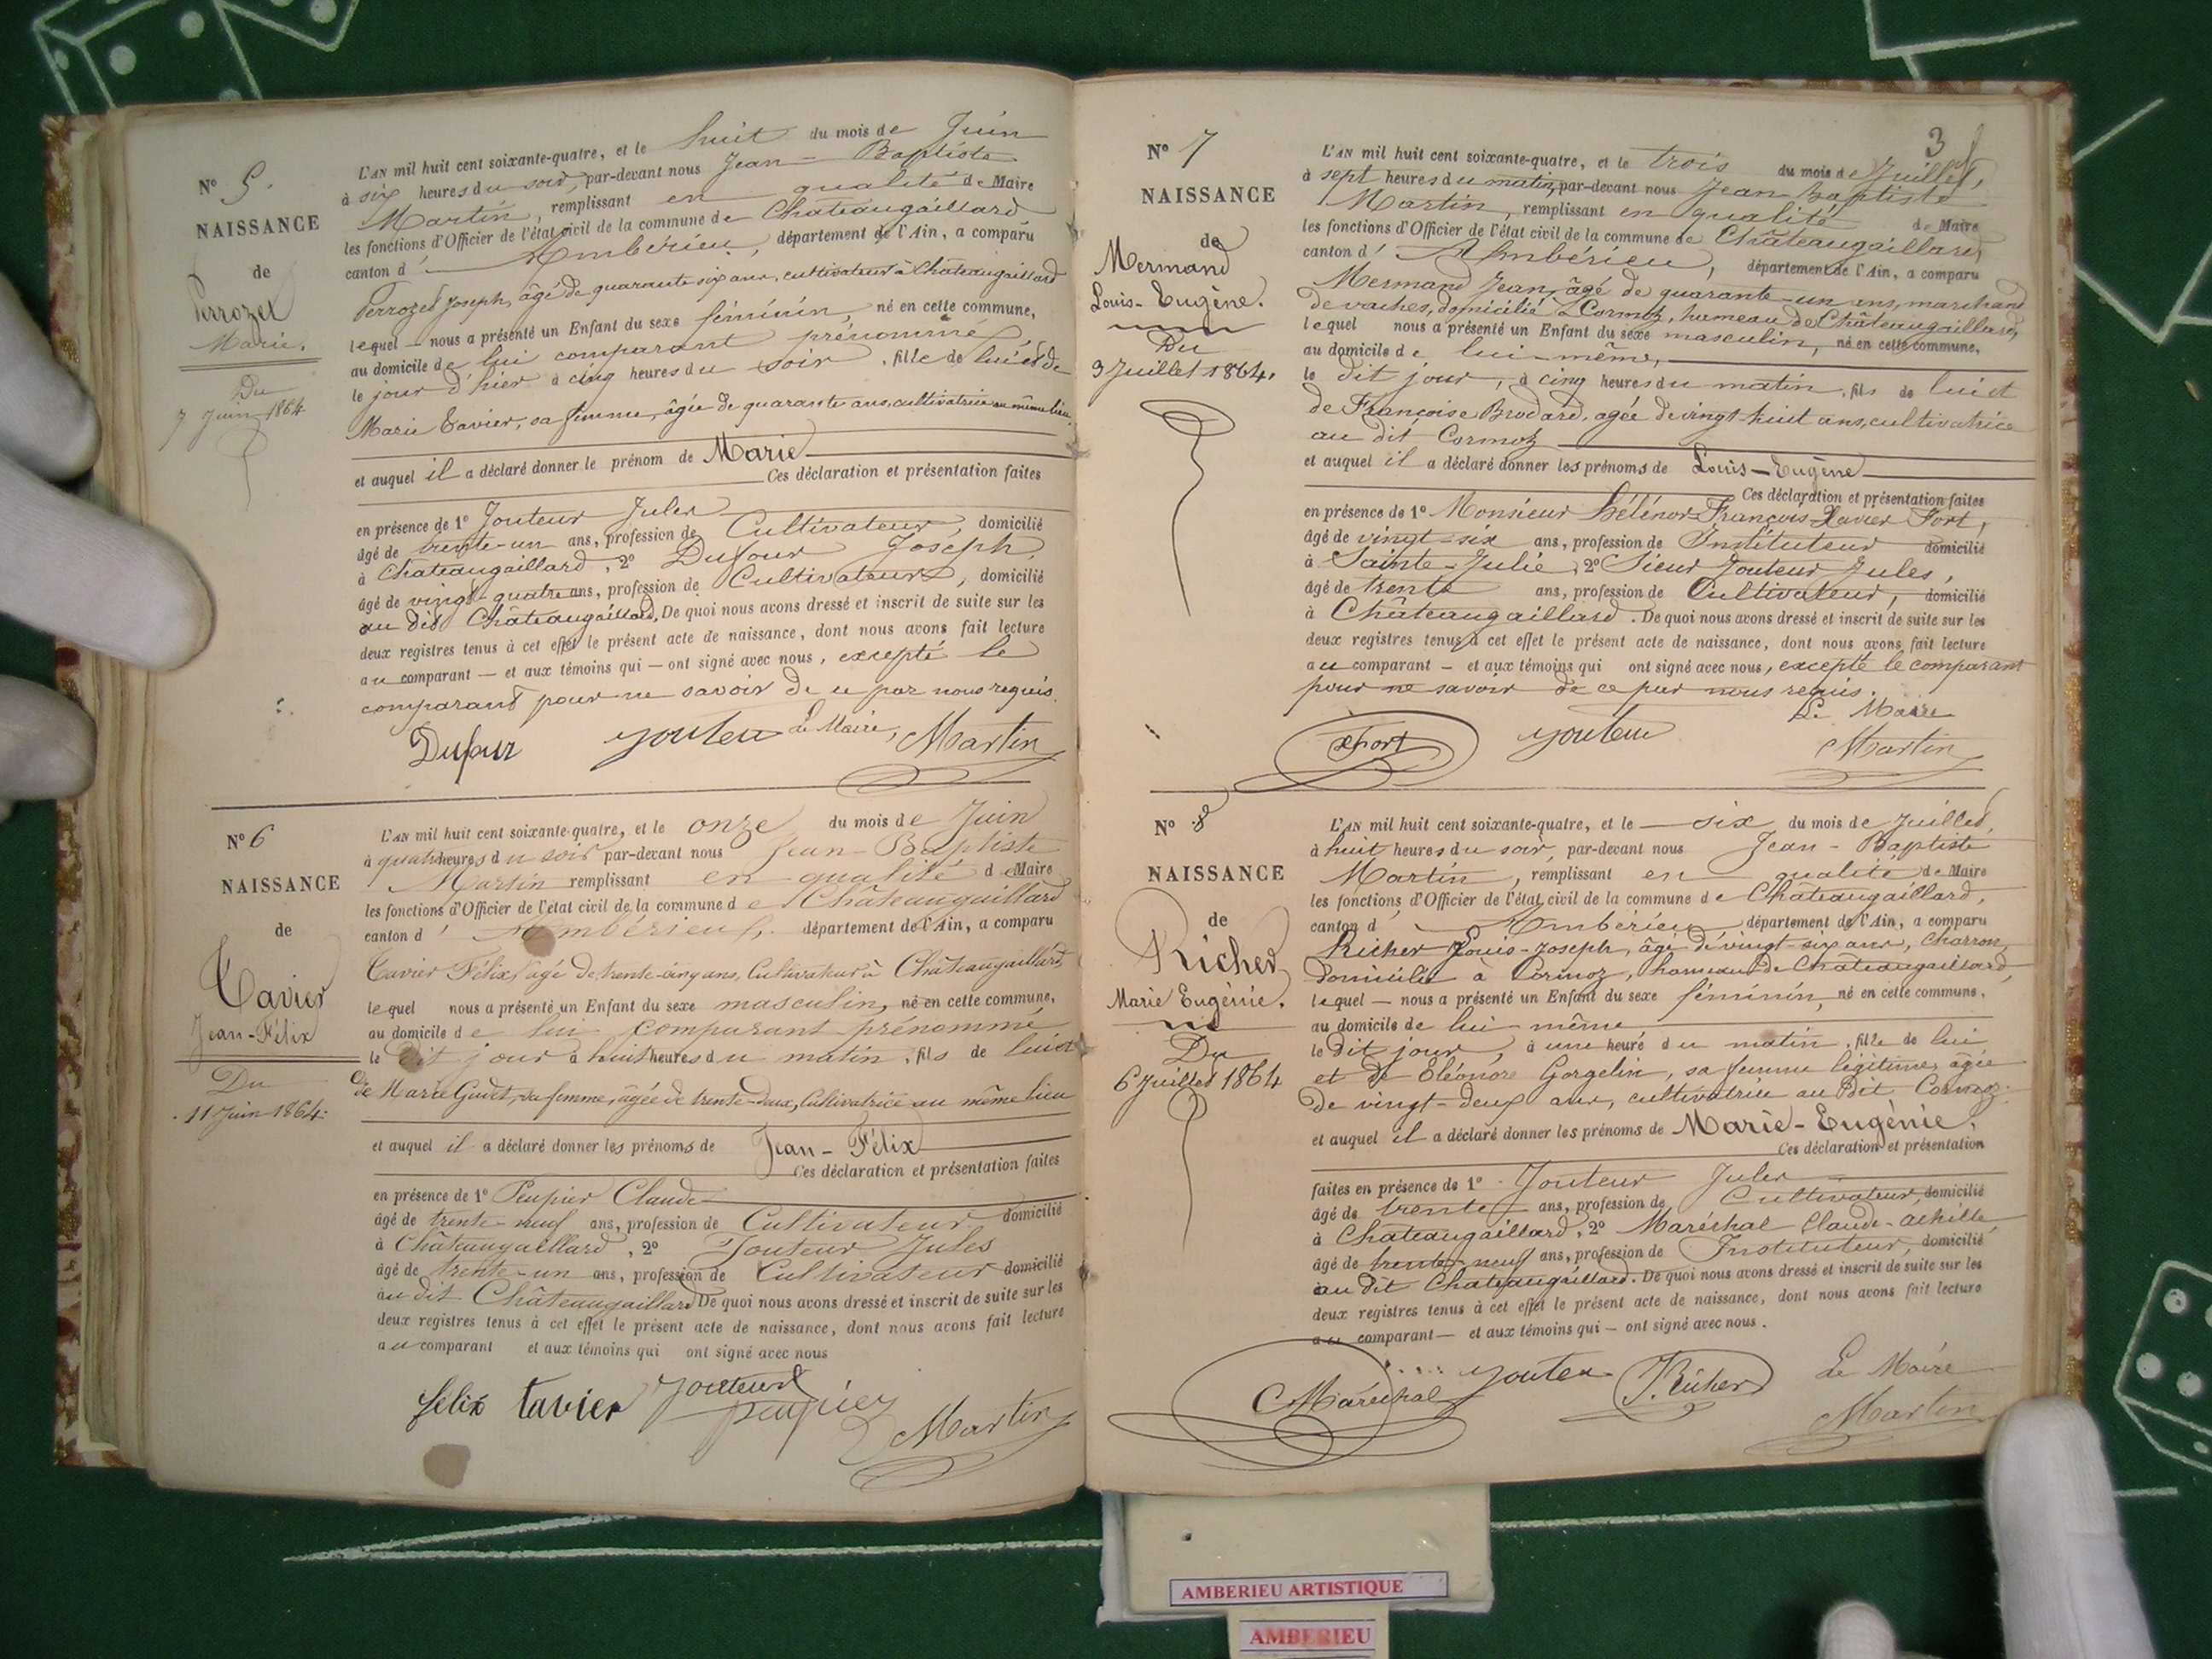 N° 5.
NAISSANCE
de
Perrozet
Marie.
Du
7 Juin 1864
L'AN mil huit cent soixante-quatre, et le huit du mois de Juin
à six heures du soir, par-devant nous Jean-Baptiste
Martin, remplissant en qualité de Maire
les fonctions d'Officier de l'état civil de la commune de Châteaugaillard
canton d'Ambérieu, département de l'Ain, a comparu
Perrozet Joseph, âgé de quarante six ans, cultivateur à Châteaugaillard
lequel — nous a présenté un Enfant du sexe féminin, né en cette commune,
au domicile de lui comparant prénommé,
le jour d'hier à cinq heures du soir, fille de lui et de
Marie Tavier, sa femme, âgée de quarante ans, cultivatrice au même lieu.
et auquel il a déclaré donner le prénom de Marie
Ces déclaration et présentation faites
en présence de 1° Jouteur Jules
âgé de trente-un ans, profession de Cultivateur, domicilié
à Chateaugaillard, 2° Dufour Joseph,
âgé de vingt-quatre ans, profession de Cultivateur, domicilié
au dit Châteaugaillard, De quoi nous avons dressé et inscrit de suite sur les
deux registres tenus à cet effet le présent acte de naissance, dont nous avons fait lecture
au comparant — et aux témoins qui — ont signé avec nous, excepté le
comparant pour ne savoir de ce par nous requis.
Dufour Jouteur Le Maire, Martin
N° 6
NAISSANCE
de
Tavier
Jean-Félix
Du
11 Juin 1864.
L'AN mil huit cent soixante-quatre, et le onze du mois de Juin
à quatre heures du soir par-devant nous Jean-Baptiste
Martin remplissant en qualité de Maire
les fonctions d'Officier de l'état civil de la commune de Châteaugaillard
canton d'Ambérieu, département de l'Ain, a comparu
Tavier Félix, âgé de trente-cinq ans, Cultivateur à Châteaugaillard,
lequel nous a présenté un Enfant du sexe masculin, né en cette commune,
au domicile de lui comparant prénommé
le dit jour à huit heures du matin, fils de lui et
de Marie Gudet, sa femme, âgée de trente-deux, Cultivatrice au même lieu
et auquel il a déclaré donner les prénoms de Jean-Félix
Ces déclaration et présentation faites
en présence de 1° Peupier Claude
âgé de trente-neuf ans, profession de Cultivateur domicilié
à Châteaugaillard, 2° Jouteur Jules
âgé de trente-un ans, profession de Cultivateur domicilié
au dit Châteaugaillard De quoi nous avons dressé et inscrit de suite sur les
deux registres tenus à cet effet le présent acte de naissance, dont nous avons fait lecture
au comparant et aux témoins qui ont signé avec nous
félix tavier Jouteur peupier
Martin
3
N° 7
NAISSANCE
de
Mermand
Louis-Eugène.
Du
3 Juillet 1864.
L'AN mil huit cent soixante-quatre, et le trois du mois de Juillet,
à sept heures du matin, par-devant nous Jean Baptiste
Martin, remplissant en qualité de Maire
les fonctions d'Officier de l'état civil de la commune de Châteaugaillard,
canton d'Ambérieu, département de l'Ain, a comparu
Mermand Jean, âgé de quarante-un ans, marchand
de vaches, domicilié à Cormoz, hameau de Châteaugaillard,
lequel nous a présenté un Enfant du sexe masculin, né en cette commune,
au domicile de lui-même,
le dit jour, à cinq heures du matin, fils de lui et
de Françoise Brodard, agée de vingt-huit ans, cultivatrice
au dit Cormoz
et auquel il a déclaré donner les prénoms de Louis-Eugène
Ces déclaration et présentation faites
en présence de 1° Monsieur Hélénor-François-Xavier Fort,
âgé de vingt-six ans, profession de Instituteur domicilié
à Sainte-Julie, 2° Sieur Jouteur Jules,
âgé de trente ans, profession de Cultivateur, domicilié
à Châteaugaillard. De quoi nous avons dressé et inscrit de suite sur les
deux registres tenus à cet effet le présent acte de naissance, dont nous avons fait lecture
au comparant — et aux témoins qui ont signé avec nous, excepté le comparant
pour ne savoir de ce par nous requis.
Le Maire
Fort Jouteur Martin
N° 8
NAISSANCE
de
Richer
Marie Eugénie.
Du
6 Juillet 1864
L'AN mil huit cent soixante-quatre, et le — six du mois de Juillet,
à huit heures du soir, par-devant nous Jean-Baptiste
Martin, remplissant en qualité de Maire
les fonctions d'Officier de l'état civil de la commune de Châteaugaillard,
canton d'Ambérieu département de l'Ain, a comparu
Richer Louis-Joseph, âgé de vingt-six ans, Charron,
domicilié à Cormoz, hameau de Châteaugaillard,
lequel — nous a présenté un Enfant du sexe féminin, né en cette commune,
au domicile de lui même
le dit jour, à une heure du matin, fille de lui
et de Eléonore Gorgelin, sa femme légitime, âgée
de vingt-deux ans, cultivatrice au dit Cormoz.
et auquel il a déclaré donner les prénoms de Marie-Eugénie.
Ces déclaration et présentation
faites en présence de 1° Jouteur Jules
âgé de trente ans, profession de Cultivateur, domicilié
à Chateaugaillard, 2° Maréchal Claude-achille,
âgé de trente-neuf ans, profession de Instituteur, domicilié
au dit Chateaugaillard. De quoi nous avons dressé et inscrit de suite sur les
deux registres tenus à cet effet le présent acte de naissance, dont nous avons fait lecture
au comparant — et aux témoins qui — ont signé avec nous.
Le Maire
C Maréchal Jouteur Richer Martin
AMBERIEU ARTISTIQUE
AMBERIEU